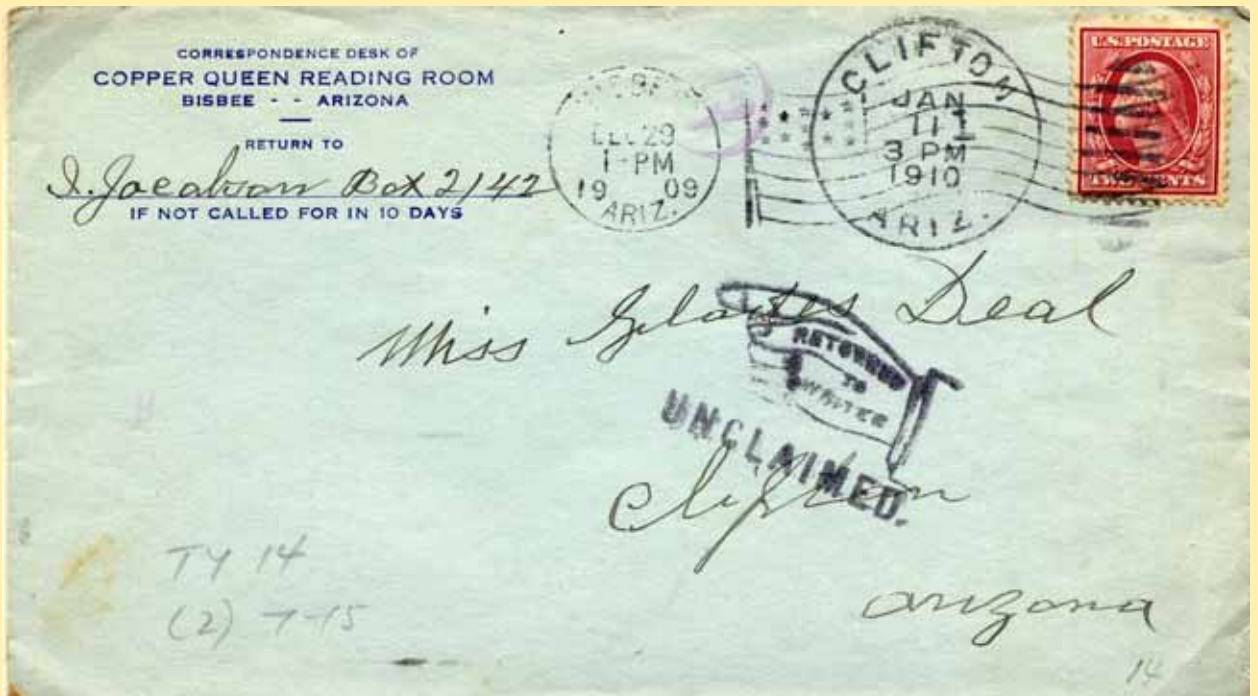 CORRESPONDENCE DESK OF
COPPER QUEEN READING ROOM
BISBEE - - ARIZONA
RETURN TO
I. Jacobson Box 2142
IF NOT CALLED FOR IN 10 DAYS
DEC 29
1-PM
19 09
ARIZ.
CLIFTON
JAN
11
3 PM
1910
ARIZ.
U.S. POSTAGE
TWO CENTS
Miss Deal
RETURNED
TO
WRITER
UNCLAIMED.
Clifton
Arizona
TY 14
(2) 7-15
14